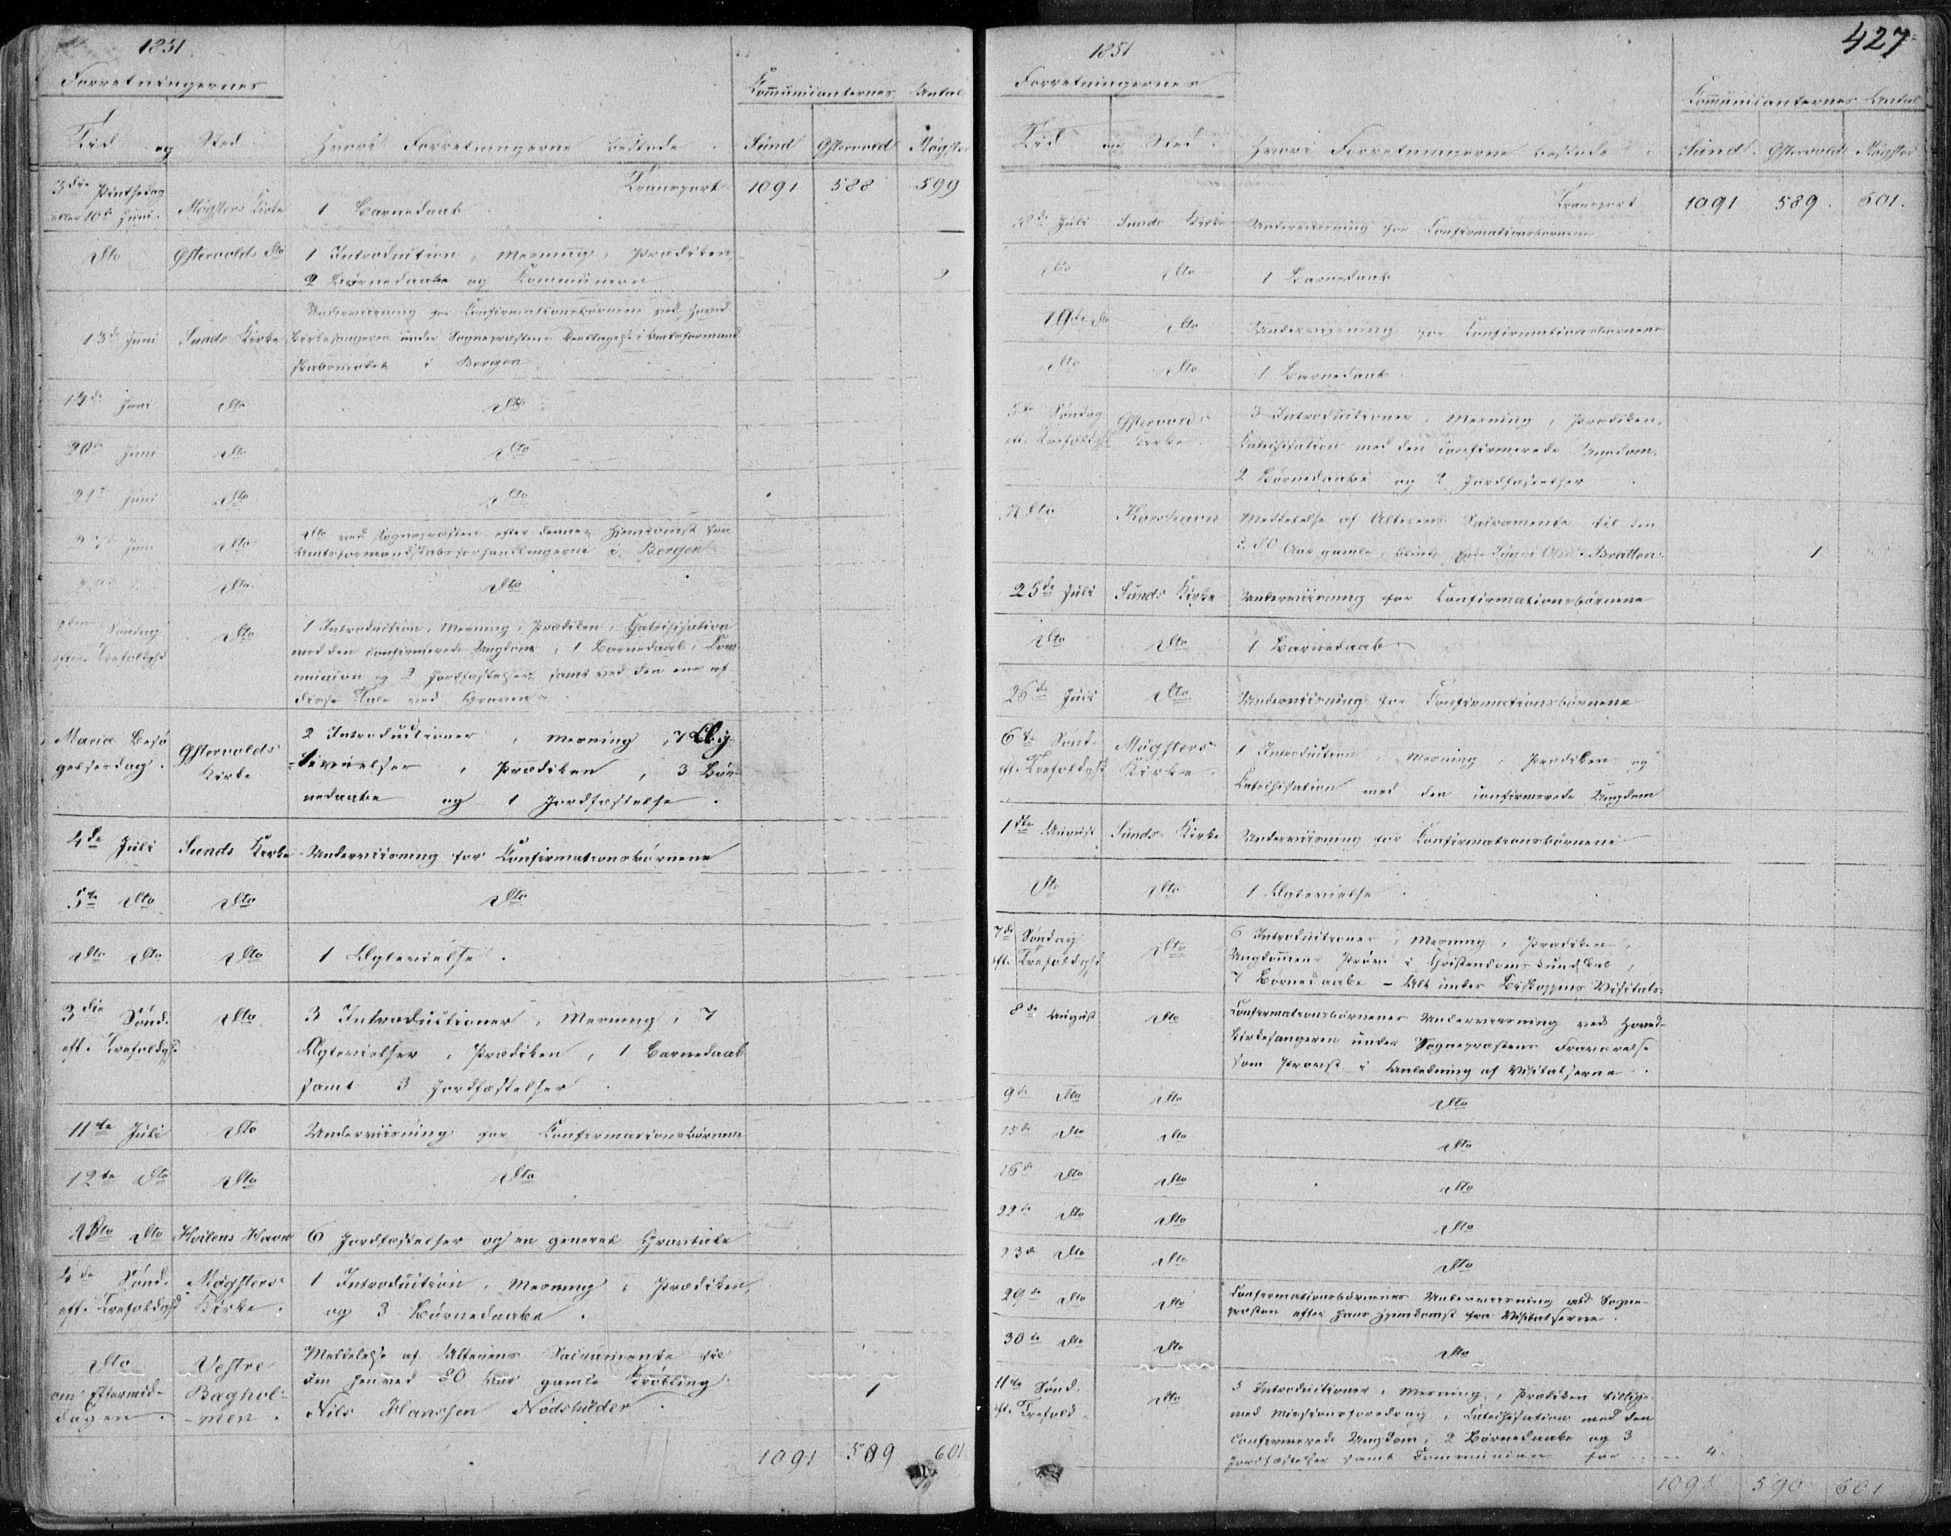 1851
Forretningernes
Communicanternes Antal
Tid og Sted
Hvori Forretningerne bestode.
Sund Østervold Møgster
Transport 1091 588 599
3die Pintsedag eller 10de Juni. Møgsters Kirke 1 Barnedaab
Dto Østervolds Dto 1 Introduction, Mesning, Prædiken,
2 Børnedaabe og Communion 2
13de Juni Sunds Kirke Underviisning for Confirmationsbørnene ved Hoved-
kirkesangeren under Sognepræstens Deeltagelse i Amtsformand-
skabsmødet i Bergen
14de Juni Dto Dto
20de Juni Dto Dto
21de Juni Dto Dto
27de Juni Dto Dto ved Sognepræsten efter dennes Hjemkomst fra
Amtsformandskabsforhandlingerne i Bergen
Dto Dto
Søndag
efter Trefoldighd Dto 1 Introduction, Mesning, Prædiken, Catechisation
med den confirmerede Ungdom, 1 Barnedaab, Com-
munion og 2 Jordfæstelser, samt ved den ene af
disse Tale ved Graven
Maria Besø-
gelsesdag. Østervolds
Kirke 2 Introductioner, Mesning, 7 Æg-
tevielser, Prædiken, 3 Bør-
nedaabe og 1 Jordfæstelse.
4de Juli Sunds Kirke Underviisning for Confirmationsbørnene
5te Dto Dto Dto
Dto Dto Dto 1 Ægtevielse.
3die Sønd.
eft. Trefoldghd. Dto 3 Introductioner, Mesning, 7
Ægtevielser, Prædiken, 1 Barnedaab
samt 3 Jordfæstelser
11te Juli Dto Underviisning for Confirmationsbørnene
12te Dto Dto Dto
Dto Dto Hoilens Havn 6 Jordfæstelser og en generel Gravtale
4de Sønd.
eft. Trefoldghd Møgsters
Kirke. 1 Introduction, Mesning, Prædiken,
og 3 Børnedaabe.
Dto
om Eftermid-
dagen. Vestre
Baghol-
men. Meddelelse af Alterens Sacramente til
den henved 80 Aar gamle Krøbling
Nils Hanssen Nødskilder. 1
1091 589 601
1851
427
Forretningernes
Communicanternes Antal
Tid og Sted Hvori Forretningerne bestode. Sund Østervold Møgster
Transport 1091 589. 601.
18de Juli Sunds Kirke Underviisning for Confirmationsbørnene
Dto Dto 1 Barnedaab
19de Dto Dto Underviisning for Confirmationsbørnene
Dto Dto 1 Barnedaab.
5te Søndag
eft. Trefoldghd Østervolds
Kirke 3 Introductioner, Mesning, Prædiken,
Catechisation med den confirmerede Ungdom,
2 Børnedaabe og 2 Jordfæstelser
Dto Korshavn Meddelelse af Alterens Sacramente til den
80 Aar gamle, blinde Bratten. 1
25de Juli Sunds Kirke Underviisning for Confirmationsbørnene
Dto Dto 1 Barnedaab
26de Juli Dto Underviisning for Confirmationsbørnene
6te Sønd.
eft. Trefoldghd Møgsters
Kirke 1 Introduction, Mesning, Prædiken og
Catechisation med den confirmerede Ungdom
1ste August Sunds Kirke Underviisning for Confirmationsbørnene
Dto Dto 1 Ægtevielse.
7de Søndag
eft. Trefoldghd Dto 6 Introductioner, Mesning, Prædiken,
Ungdommens Prøve i Christendomskundskab,
7 Børnedaabe – Alt under Biskoppens Visitats.
8de August Dto Confirmationsbørnenes Underviisning ved Hoved-
kirkesangeren under Sognepræstens Fraværelse
som Provst i Anledning af Visitatserne.
9de Dto Dto Dto
15de Dto Dto Dto
16de Dto Dto Dto
22de Dto Dto Dto
23de Dto Dto Dto
29de Dto Dto Confirmationsbørnenes Underviisning ved Sogne-
præsten efter hans Hjemkomst fra Visitatserne.
30de Dto Dto Dto
11te Sønd.
eft. Trefold. Dto 3 Introductioner, Mesning, Prædiken tillige-
med Missionsforedrag, Catechisation med den
confirmerede Ungdom, 2 Børnedaabe og 3
Jordfæstelser samt Communion for .... 4.
1095 590 601